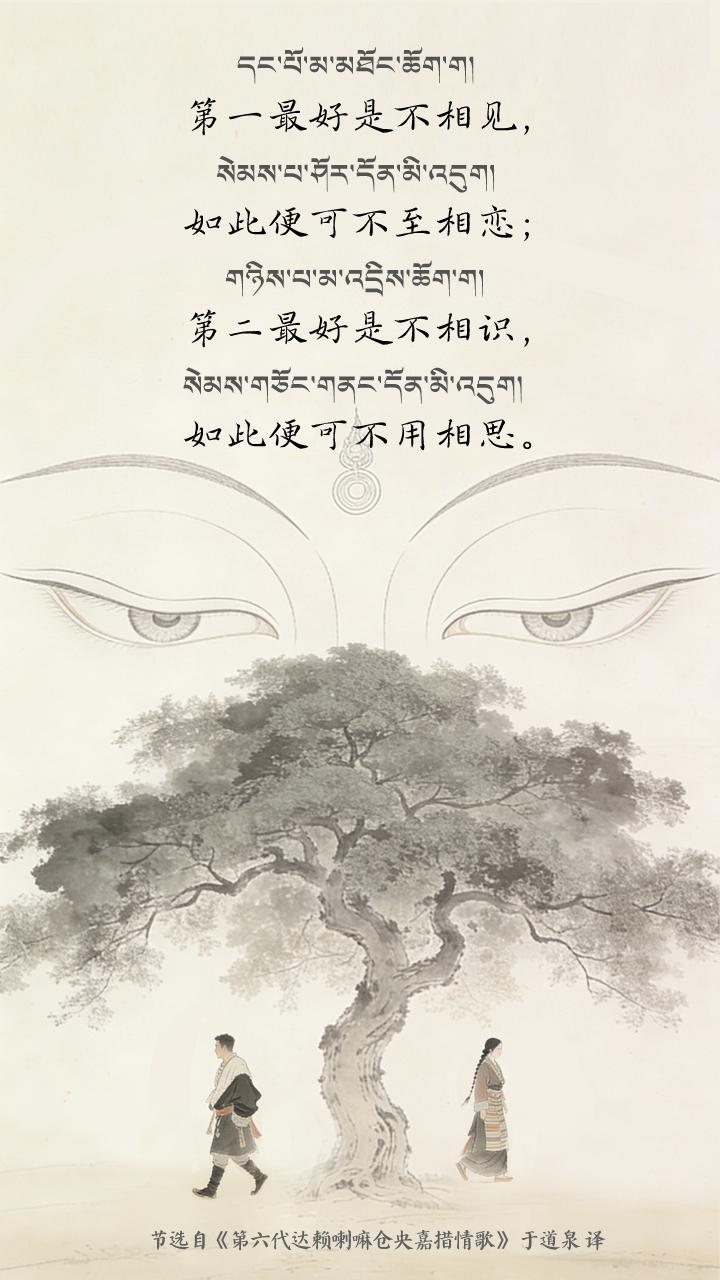 དང་པོ་མ་མཐོང་ཆོག་ག།
第一最好是不相见，
སེམས་པ་ཤོར་དོན་མི་འདུག།
如此便可不至相恋；
གཉིས་པ་མ་འདྲིས་ཆོག་ག།
第二最好是不相识，
སེམས་གཅོང་གནང་དོན་མི་འདུག།
如此便可不用相思。
节选自《第六代达赖喇嘛仓央嘉措情歌》于道泉译